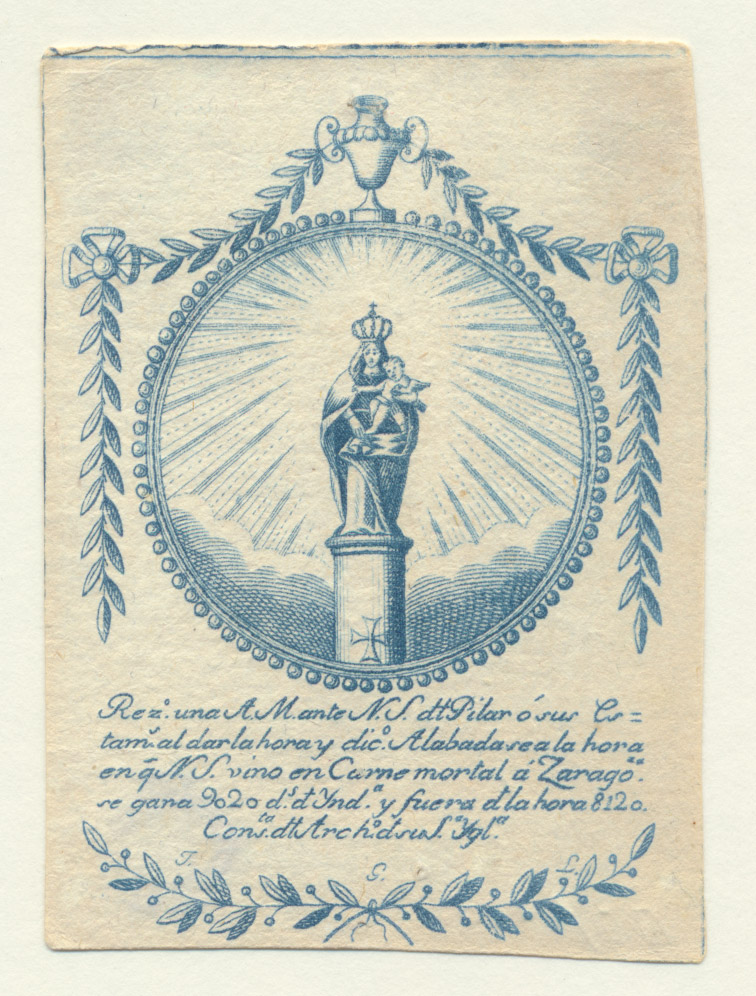 Rez.º una A M. ante N. S. dtl Pilar ó sus Es=
tam.s al dar la hora y dic.º Alabada sea la hora
en q̄ N. S. vino en Carne mortal á Zarago.ª
se gana 9020 d.s d Ind.ª y fuera d la hora 8120.
Cons.ta dtl Arch.º d su S.ª Ygl.ª
J. G. L.